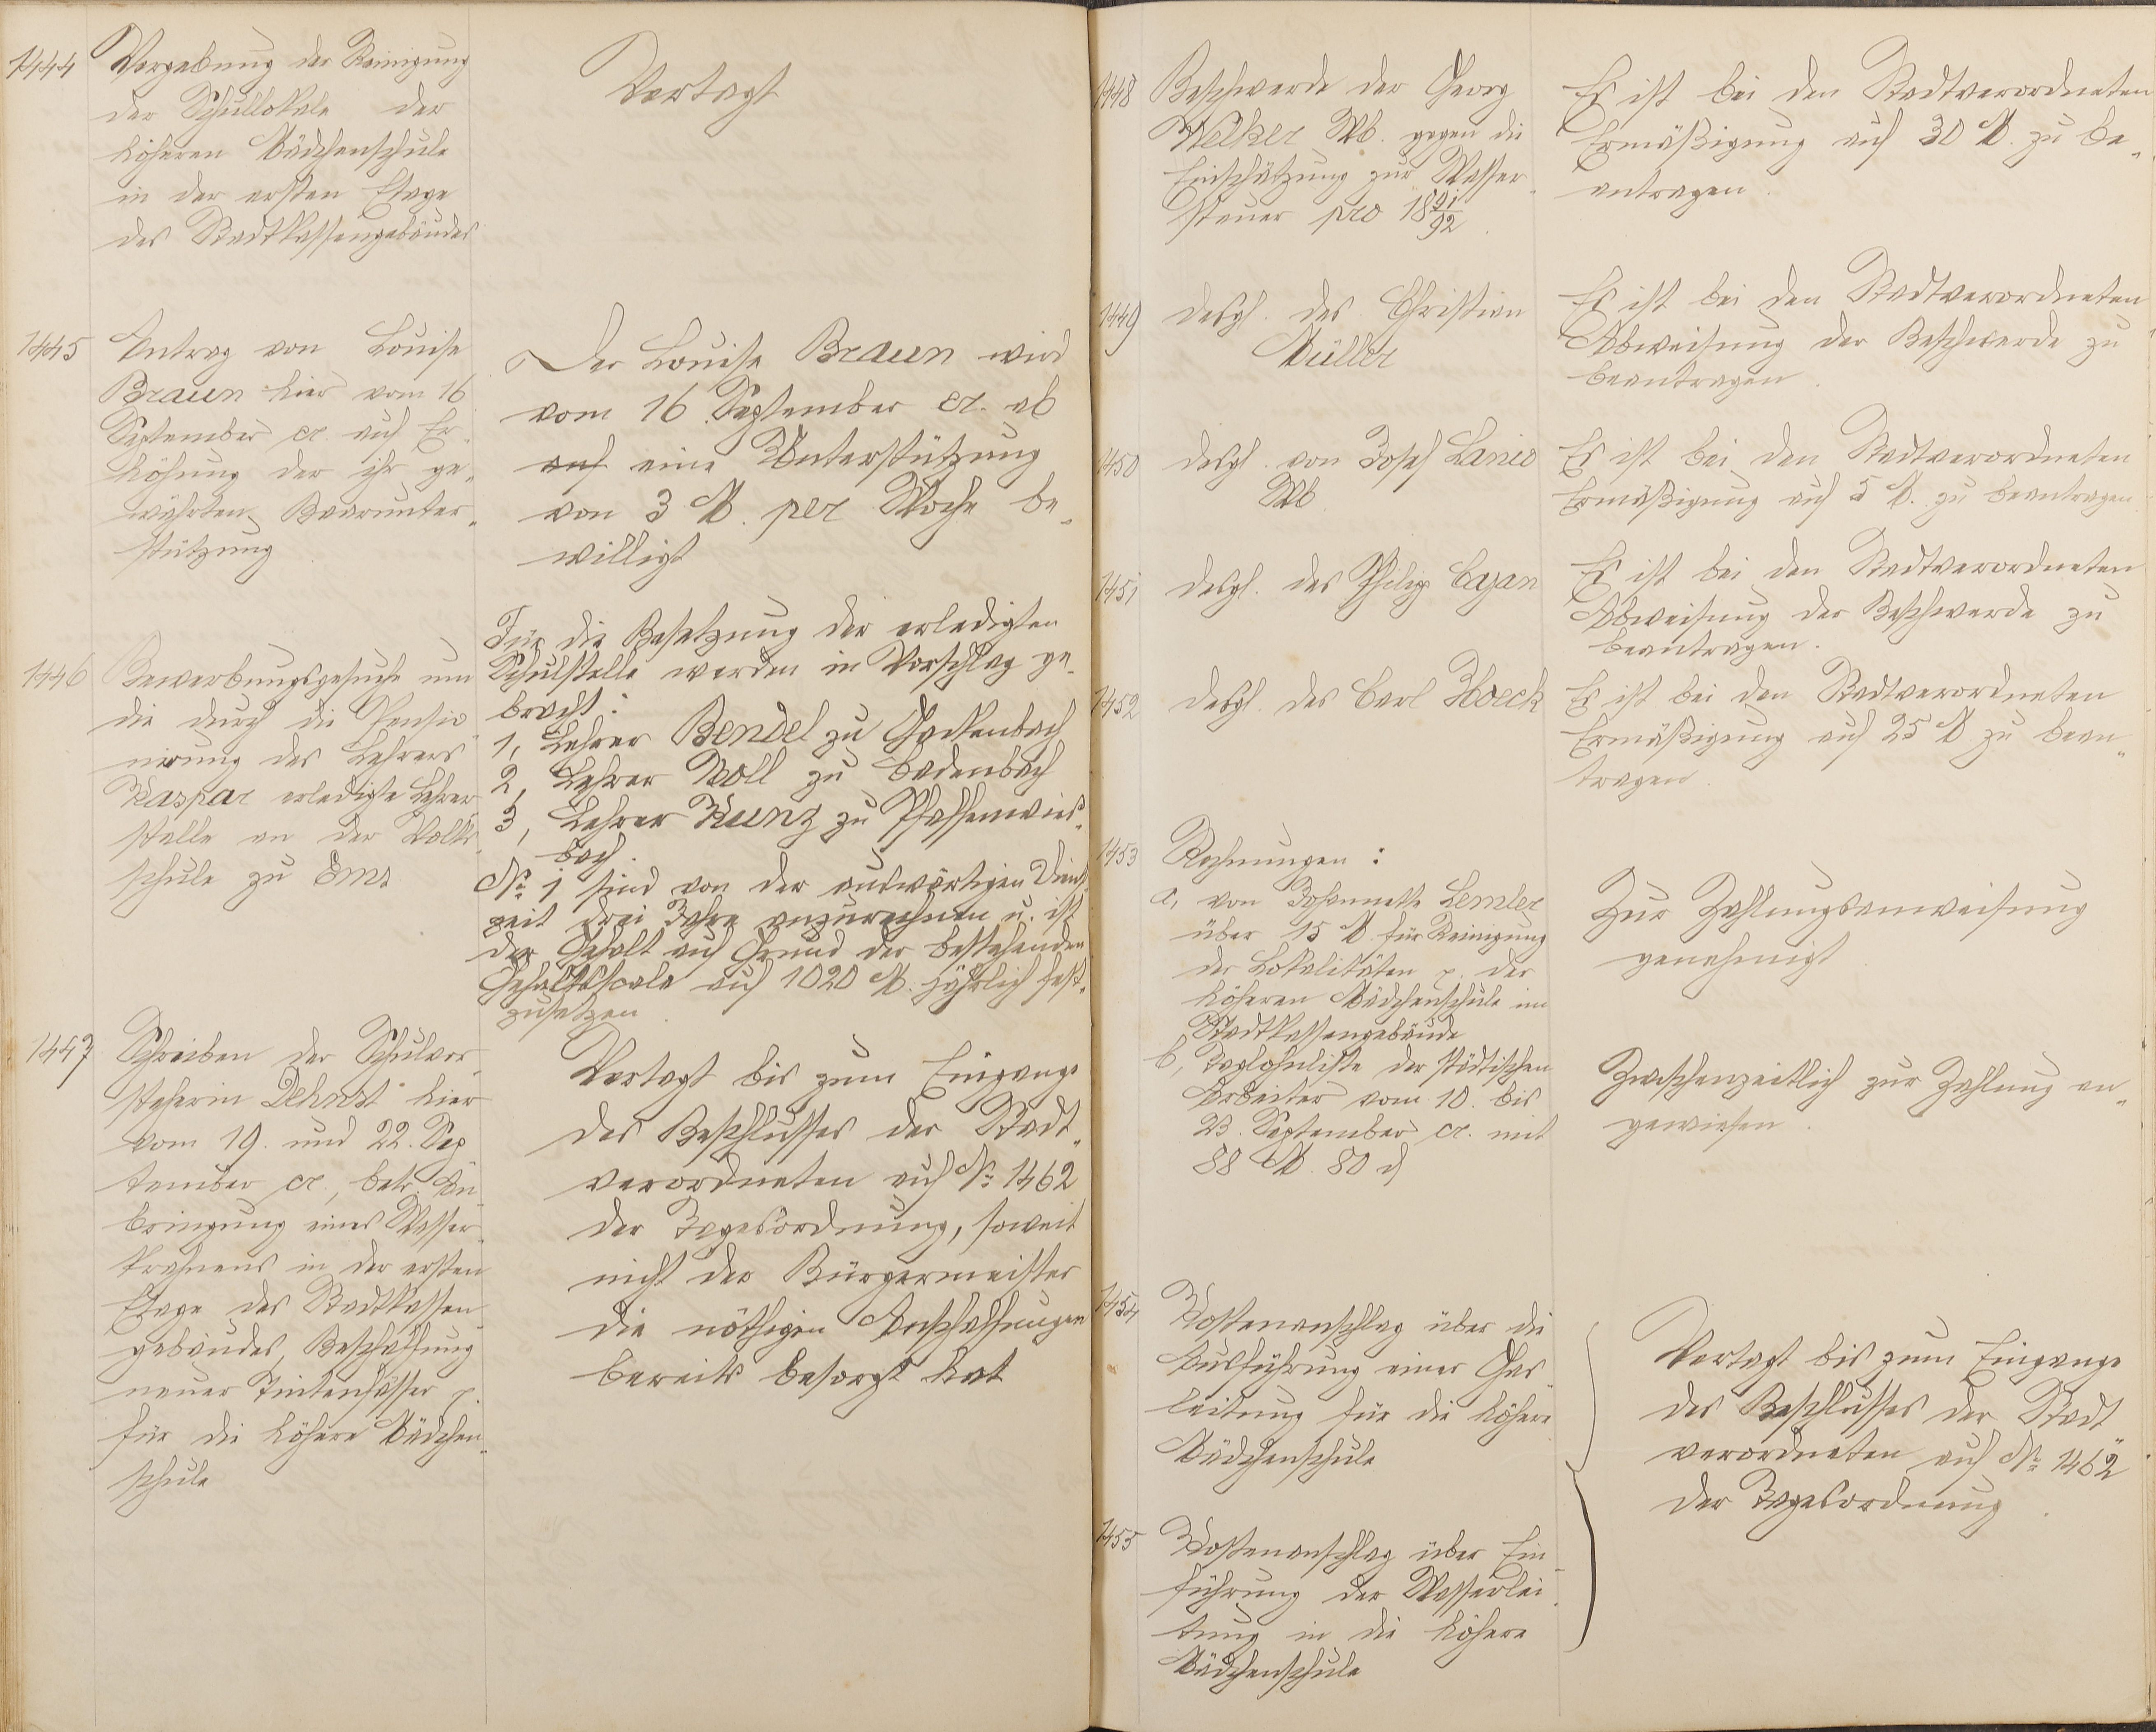 1444
Vergebung der Reinigung
der Schullokale der
höheren Mädchenschule
in der ersten Etage
des Stadtkassengebäudes
Vertagt
1445
Antrag von Louise
Braun hier vom 16
September cr. auf Er-
höhung der ihr ge-
währten Baarunter-
stützung
Der Louise Braun wird
vom 16. September cr. ab
auf eine Unterstützung
von 3 M. per Woche be-
willigt
1446
Bewerbungsgesuche um
die durch die Pensio-
nirung des Lehrers
Kaspar erledigte Lehrer-
stelle an der Volks-
schule zu Ems
Für die Besetzung der erledigten
Schulstelle werden in Vorschlag ge-
bracht:
1, Lehrer Bendel zu Gackenbach
2, Lehrer Noll zu Cadenbach
3, Lehrer Kunz zu Pfaffenwies-
bach.
No 1 sind von der auswärtigen Dienst-
zeit drei Jahre anzurechnen u. ist
der Gehalt auf Grund der bestehenden
Gehaltsscala auf 1020 M. jährlich fest-
zusetzen
1447
Schreiben der Schulvor-
steherin hier
vom 19. und 22. Sep-
tember cr., betr. An-
bringung eines Wasser-
krahnens in der ersten
Etage des Stadtkassen-
gebäudes, Beschaffung
neuer Tintenfässer p.
für die höhere Mädchen-
schule
Vertagt bis zum Eingange
des Beschlusses der Stadt-
verordneten auf No 1462
der Tagesordnung, soweit
nicht der Bürgermeister
die nöthigen Anschaffungen
bereits besorgt hat
1448
Beschwerde der Georg
Welker Wb. gegen die
Einschätzung zur Wasser-
steuer pro 1891/92.
Es ist bei den Stadtverordneten
Ermäßigung auf 30 M. zu be-
antragen.
1449
desgl. des Christian
Müller
Es ist bei den Stadtverordneten
Abweisung der Beschwerde zu
beantragen.
1450
desgl. von Josef Lanio
Wb.
Es ist bei den Stadtverordneten
Ermäßigung auf 5 M. zu beantragen
1451
desgl. des Philip Cyan
Es ist bei den Stadtverordneten
Abweisung der Beschwerde zu
beantragen.
1452
desgl. des Carl Kock
Es ist bei den Stadtverordneten
Ermäßigung auf 25 M zu bean-
tragen.
1453
Rechnungen:
a, von Johannette Lemler
über 15 M. für Reinigung
der Lokalitäten p. der
höheren Mädchenschule im
Stadtkassengebäude
Zur Zahlungsanweisung
genehmigt.
b, Taglohnliste der städtischen
Arbeiter vom 10. bis
23. September cr. mit
88 M. 80 d
Zwischenzeitlich zur Zahlung an-
gewiesen.
1454
Kostenanschlag über die
Ausführung einer Gas-
leitung für die höhere
Mädchenschule
Vertagt bis zum Eingange
des Beschlusses der Stadt-
verordneten auf No 1462
der Tagesordnung.
1455
Kostenanschlag über Ein-
führung der Wasserlei-
tung in die höhere
Mädchenschule